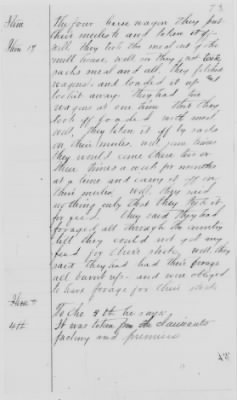 73
Item
Item 17
the four horse wagon they put
their mules to and taken it off
well, they took the meal out of the
mill house, well in they got
sacks meal and all, they fetched
wagons, and loaded it up and
took it away. They had his
wagons at one time that they
took off loaded with meal
well, they taken it off by sacks
on their mules. well some times
they would come there two or
three times a week for months
at a time and carry it off on
their mules. Well, they said
nothing only that they took it
for feed. They said they had
foraged all through the country
till they could not get any
feed for their stock, and they
said they had had their forage
all burnt up, and were obliged
to have forage for their stock
To the 4th he says
4th
It was taken from the claimants
factory and premises